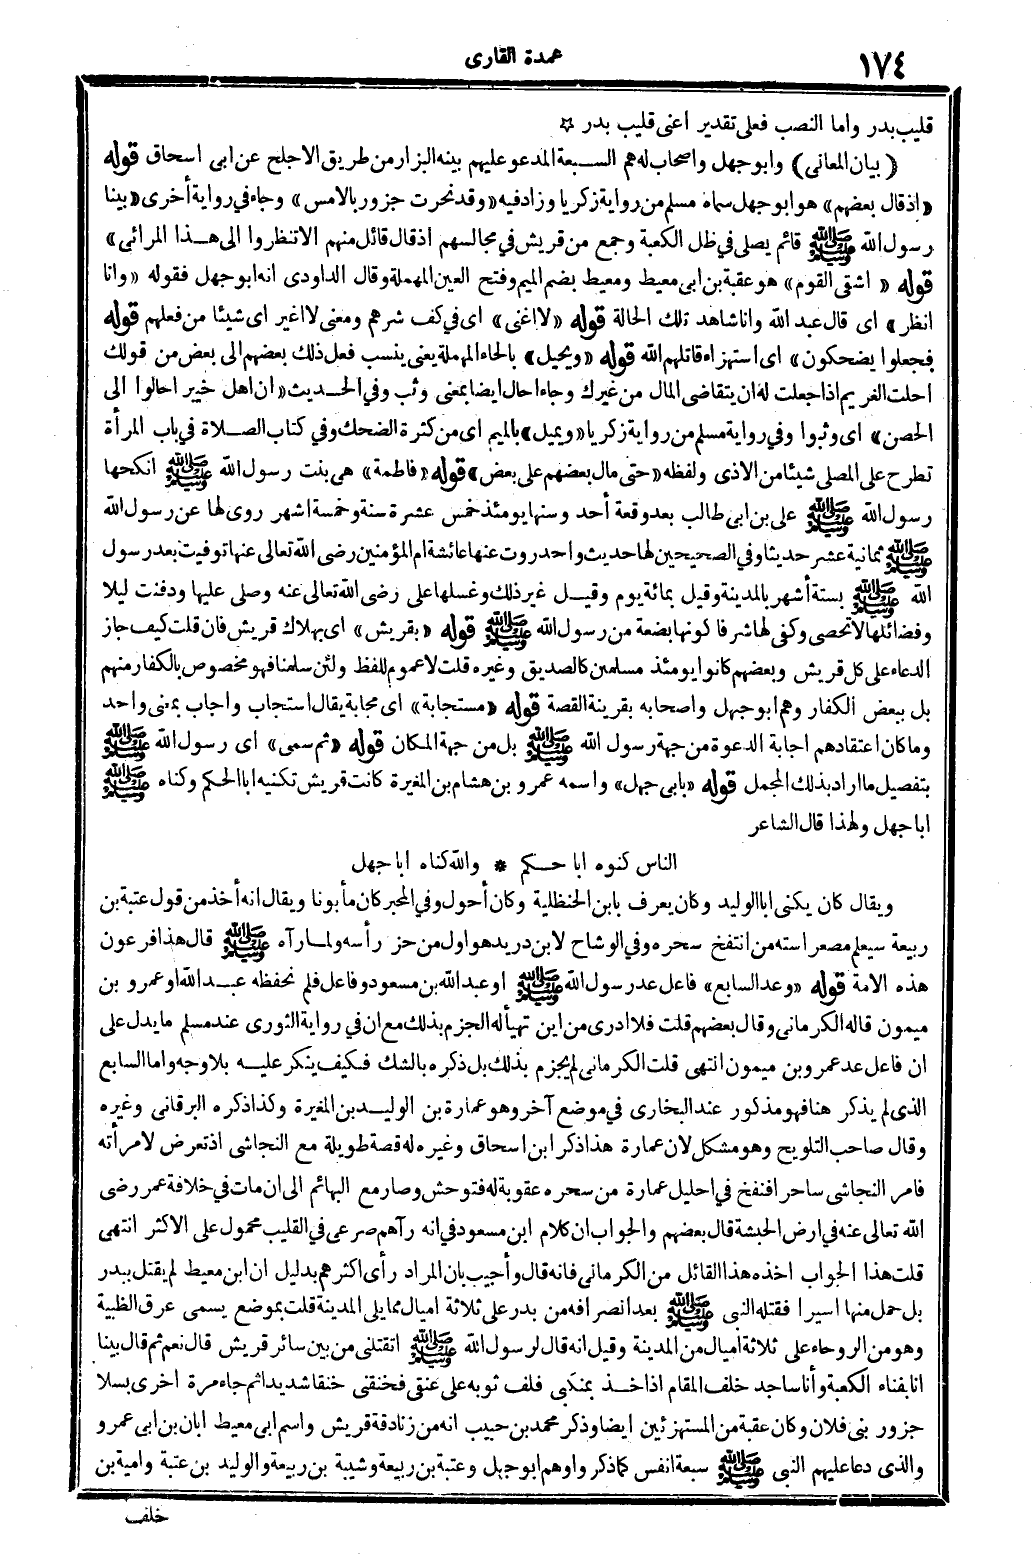 ١٧٤
عمدة القارى
قليب بدر واما النصب فعلى تقدير أعنى قليب بدر ☆
( بيان المعانى) وابو جهل واصحاب له هم السبعة المدعو عليهم بينه البزار من طريق الاجلح عن ابى اسحاق قوله
«اذ قال بعضهم» هو ابو جهل سماه مسلم من رواية زكريا وزاد فيه «وقد نحرت جزور بالامس» وجاء فى رواية أخرى «بينا
رسول الله ﷺ قائم يصلى فى ظل الكعبة وجمع من قريش فى مجالسهم اذ قال قائل منهم الا تنظروا الى هذا المرائى»
قوله « اشقى القوم» هو عقبة بن ابى معيط ومعيط بضم الميم وفتح العين المهملة وقال الداودى انه ابو جهل فقوله «وانا
انظر» اى قال عبد الله وانا شاهد تلك الحالة قوله «لا اغنى» اى فى كف شرهم ومعنى لا اغير اى شيئا من فعلهم قوله
فجعلوا يضحكون» اى استهزاء قاتلهم الله قوله «ويحيل» بالحاء المهملة يعنى ينسب فعل ذلك بعضهم الى بعض من قولك
احلت الغريم اذا جعلت له ان يتقاضى المال من غيرك وجاء احال ايضا بمعنى وثب وفى الحديث «ان اهل خيبر احالوا الى
الحصن» اى وثبوا وفى رواية مسلم من رواية زكريا «ويميل» بالميم اى من كثرة الضحك وفى كتاب الصلاة فى باب المرأة
تطرح على المصلى شيئا من الاذى ولفظه «حتى مال بعضهم على بعض» قوله «فاطمة» هى بنت رسول الله ﷺ انكحها
رسول الله ﷺ على بن ابى طالب بعد وقعة أحد وسنها يومئذ خمس عشرة سنة وخمسة اشهر روى لها عن رسول الله
ﷺ ثمانية عشر حديثا وفى الصحيحين لها حديث واحد روت عنها عائشة ام المؤمنين رضى الله تعالى عنها توفيت بعد رسول
الله ﷺ بستة أشهر بالمدينة وقيل بمائة يوم وقيل غير ذلك وغسلها على رضى الله تعالى عنه وصلى عليها ودفنت ليلا
وفضائلها لا تحصى وكفى لها شرفا كونها بضعة من رسول الله ﷺ قوله «بقريش» اى بهلاك قريش فان قلت كيف جاز
الدعاء على كل قريش وبعضهم كانوا يومئذ مسلمين كالصديق وغيره قلت لا عموم للفظ ولئن سلمنا فهو مخصوص بالكفار منهم
بل ببعض الكفار وهم ابو جهل واصحابه بقرينة القصة قوله «مستجابة» اى مجابة يقال استجاب واجاب بمعنى واحد
وما كان اعتقادهم اجابة الدعوة من جهة رسول الله ﷺ بل من جهة المكان قوله «ثم سمى» اى رسول الله ﷺ
بتفصيل ما اراد بذلك المجمل قوله «بابى جهل» واسمه عمرو بن هشام بن المغيرة كانت قريش تكنيه ابا الحكم وكناه ﷺ
ابا جهل ولهذا قال الشاعر
الناس كنوه ابا حكم * والله كناه ابا جهل
ويقال كان يكنى ابا الوليد وكان يعرف بابن الحنظلية وكان أحول وفى المحبر كان مأبونا ويقال انه أخذ من قول عتبة بن
ربيعة سيعلم مصعر استه من انتفخ سحره وفى الوشاح لابن دريد هو اول من حز رأسه ولما رآه ﷺ قال هذا فرعون
هذه الامة قوله «وعد السابع» فاعل عد رسول الله ﷺ او عبد الله بن مسعود وفاعل فلم نحفظه عبد الله او عمرو بن
ميمون قاله الكرمانى وقال بعضهم قلت فلا ادرى من اين تهيأ له الجزم بذلك مع ان فى رواية الثورى عند مسلم ما يدل على
ان فاعل عد عمرو بن ميمون انتهى قلت الكرمانى لم يجزم بذلك بل ذكره بالشك فكيف ينكر عليه بلا وجه واما السابع
الذى لم يذكر هنا فهو مذكور عند البخارى فى موضع آخر وهو عمارة بن الوليد بن المغيرة وكذا ذكره البرقانى وغيره
وقال صاحب التلويح وهو مشكل لان عمارة هذا ذكر ابن اسحاق وغيره له قصة طويلة مع النجاشى اذ تعرض لامرأته
فامر النجاشى ساحرا فنفخ فى احليل عمارة من سحره عقوبة له فتوحش وصار مع البهائم الى ان مات فى خلافة عمر رضى
الله تعالى عنه فى ارض الحبشة قال بعضهم والجواب ان كلام ابن مسعود فى انه رآهم صرعى فى القليب محمول على الاكثر انتهى
قلت هذا الجواب اخذه هذا القائل من الكرمانى فانه قال وأجيب بان المراد رأى اكثرهم بدليل ان ابن معيط لم يقتل ببدر
بل حمل منها اسيرا فقتله النبى ﷺ بعد انصرافه من بدر على ثلاثة اميال مما يلى المدينة قلت بموضع يسمى عرق الظبية
وهو من الروحاء على ثلاثة اميال من المدينة وقيل انه قال لرسول الله ﷺ اتقتلنى من بين سائر قريش قال نعم ثم قال بينا
انا بفناء الكعبة وأنا ساجد خلف المقام اذ اخذ بمنكبى فلف ثوبه على عنقى فخنقنى خنقا شديدا ثم جاء مرة اخرى بسلا
جزور بنى فلان وكان عقبة من المستهزئين ايضا وذكر محمد بن حبيب انه من زنادقة قريش واسم ابى معيط ابان بن ابى عمرو
والذى دعا عليهم النبى ﷺ سبعة انفس كما ذكروا وهم ابو جهل وعتبة بن ربيعة وشيبة بن ربيعة والوليد بن عتبة وامية بن
خلف